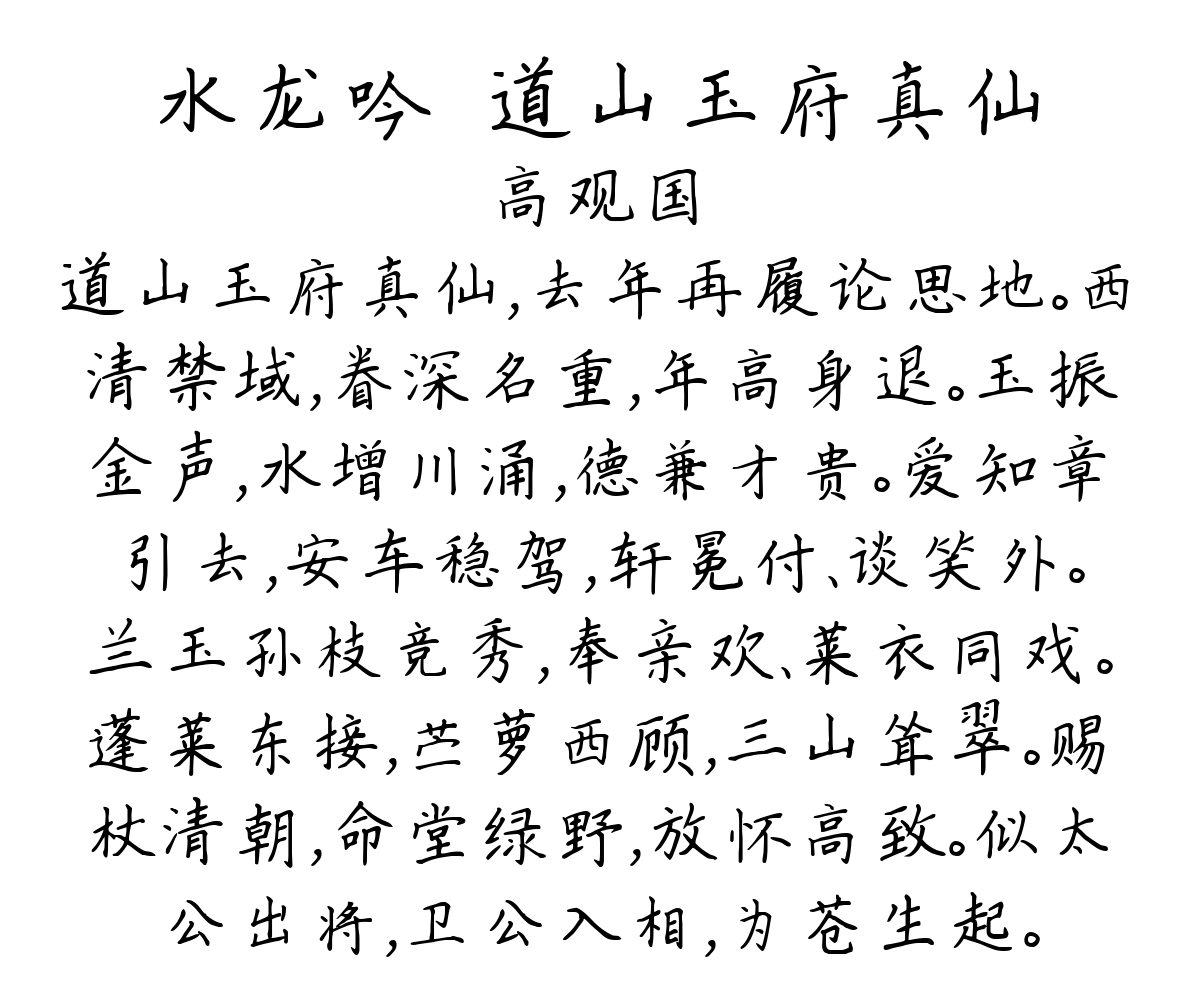 水龙吟 道山玉府真仙
高观国
道山玉府真仙,去年再履论思地。西
清禁域,眷深名重,年高身退。玉振
金声,水增川涌,德兼才贵。爱知章
引去,安车稳驾,轩冕付、谈笑外。
兰玉孙枝竞秀,奉亲欢、莱衣同戏。
蓬莱东接,苎萝西顾,三山耸翠。赐
杖清朝,命堂绿野,放怀高致。似太
公出将,卫公入相,为苍生起。